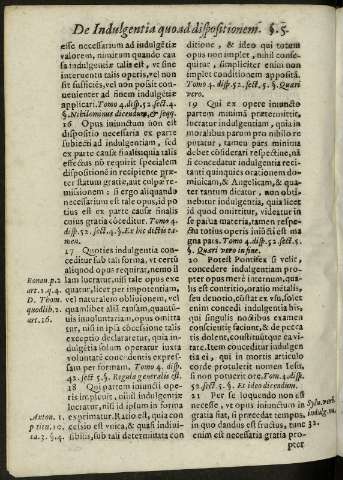 De Indulgentia quo ad dispositionem. §.5.
esse necessarium ad indulgẽtiæ
valorem, nimirum quando cau
sa indulgentiæ talis est, vt sine
interuentu talis operis, vel non
sit sufficiẽs, vel non possit con-
uenienter ad finem indulgẽtiæ
applicari. Tomo 4. disp. 52. sect. 4.
§. Nihilominus dicendum, & seqq.
16 Opus iniunctum non est
dispositio necessaria ex parte
subiecti ad indulgentiam, sed
ex parte causæ finalis: quia talis
effectus nõ requirit specialem
dispositionẽ in recipiente præ-
ter statum gratiæ, aut culpæ re-
missionem: si ergo aliquando
necessarium est tale opus, id po
tius est ex parte causæ finalis
cuius gratia cõceditur. Tomo 4.
disp. 52. sect. 4. §. Ex his dictis ta-
men.
17 Quoties indulgentia con-
ceditur sub tali forma, vt certũ
aliquod opus requirat, nemo il
lam lucratur, nisi tale opus exe
quatur, licet per impotentiam,
vel naturalem obliuionem, vel
quamlibet aliã causam, quãtũ-
uis inuoluntariam, opus omitta
tur, nisi in ipsa cõcessione talis
exceptio declararetur, quia in-
dulgẽtia solum operatur iuxta
voluntatẽ concedentis expres-
sam per formam. Tomo 4. disp.
42. sect. 5. §. Regula generalis est.
18 Qui partem iniuncti ope-
ris impleuit, nihil indulgẽtiæ
lucratur, nisi id ipsum in forma
exprimatur. Ratio est, quia con
cessio est vnica, & quasi indiui-
sibilis, sub tali determinata con
Bonau. p. 2.
art. 1. q. 4.
D. Thom.
quodlib. 2.
art. 16.
Anton. 1.
p. tit. 10.
ca. 3. §. 4.
ditione, & ideo qui totem
opus non implet, nihil conse-
quitur; quia simpliciter non
implet conditionem appositã.
Tomo 4. disp. 52. sect. 5. §. Quæri
vero.
19 Qui ex opere iniuncto
partem minimã prætermittit,
lucratur indulgentiam, quia
moralibus parum pro nihilo re
putatur, tamen pars minima
debet cõsiderari respectiue, nã
si concedatur indulgentia reci-
tanti quinquies orationem do
minicam, & Angelicam, & qua-
ter tantum dicatur, non obti-
nebitur indulgentia, quia licet
id quod omittitur, videatur in
se parua materia, tamen respe-
ctu totius operis iniũcti est ma
gna pars. Tomo 4. disp. 52. sect. 5.
§. Quæri vero in fine.
20 Potest Pontifex si velit,
concedere indulgentiam pro-
pter opus merè internum, vt
est contritio, oratio mentalis,
seu deuotio, cõstat ex vsu, solet
enim concedi indulgentia bis,
qui singulis noctibus examen
conscientiæ faciunt, & de pecca
tis dolent, constituuntque ea vi-
tare. Item conceditur indulgen
tia ei, qui in mortis articulo
corde protulerit nomen Iesu,
si non potuerit ore. Tom. 4. disp.
52. sect. 5. §. Et ideo dicendum.
21 Per se loquendo non est
necesse, vt opus iniunctum in
gratia fiat, si præcedat tempus,
in quo dandus est fructus, tunc
enim est necessarij gratia pro-
pter
Sylu. verb.
indulg. nu.
32.